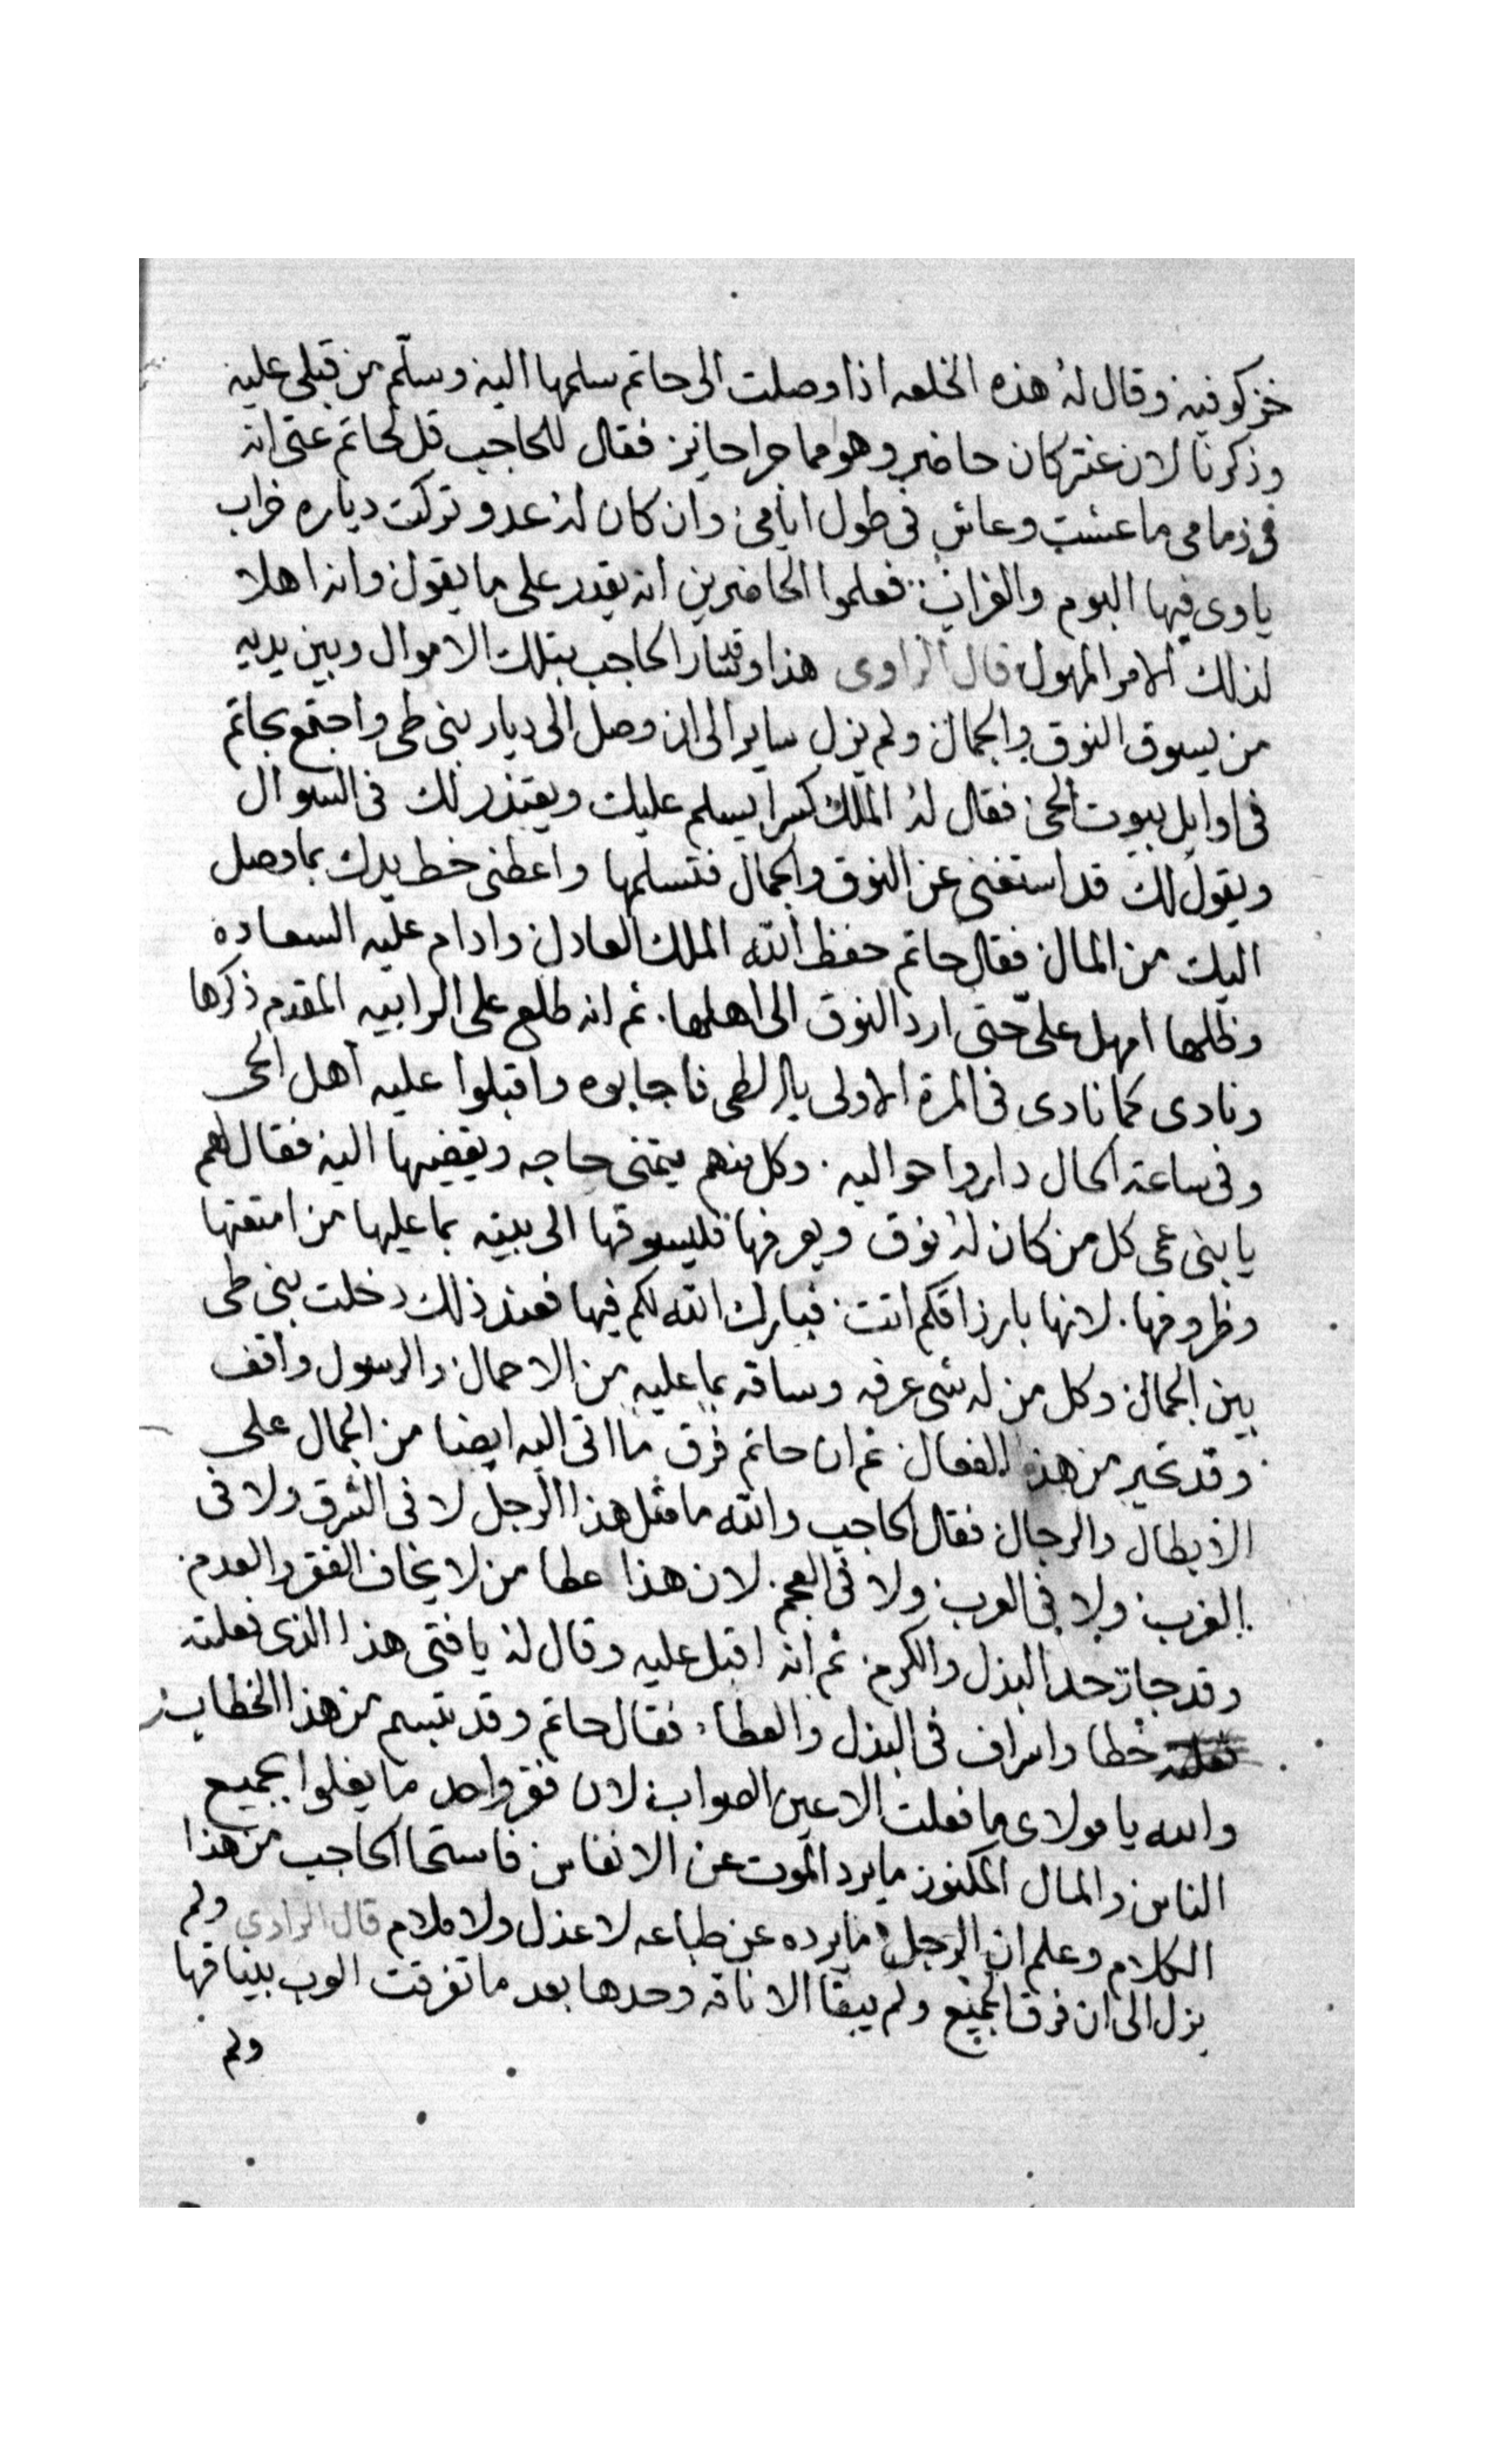 خز كوفيه وقال له هذه الخلعه اذا وصلت الى حاتم سلمها اليه وسلّم من قبلى عليه
وذكرنا لان عنتر كان حاضر وهو مما جرا حاير فقال للحاجب قل لحاتم عنى انه
فى ذمامى ما عشت وعاش فى طول ايامى وان كان له عدو تركت دياره خراب
ياوى فيها البوم والغراب فعلموا الحاضرين انه يقدر على ما يقول وانه اهلا
لذلك الامر المهول قال الراوى هذا وقد سار الحاجب بتلك الاموال وبين يديه
من يسوق النوق والجمال ولم يزل ساير الى ان وصل الى ديار بنى طى واجتمع بحاتم
فى اوايل بيوت الحى فقال له الملك كسرا يسلم عليك ويعتذر لك فى السوال
ويقول لك قد استغنى عن النوق والجمال فتسلمها واعطنى خط يدك بما وصل
اليك من المال فقال حاتم حفظ الله الملك العادل وادام عليه السعاده
وظلها امهل علىّ حتى ارد النوق الى اهلها. ثم انه طلع على الرابيه المقدم ذكرها
ونادى كما نادى فى المرة الاولى يال طى فاجابوه واقبلوا عليه اهل الحى
وفى ساعة الحال داروا حواليه. وكل منهم يتمنى حاجه ويقضيها اليه فقال لهم
يا بنى عمى كل من كان له نوق ويعرفها فليسوقها الى بيته بما عليها من امتعتها
وظروفها. لانها بارزاقكم اتت فبارك الله لكم فيها فعند ذلك دخلت بنى طى
بين الجمال وكل من له شى عرفه وساقه بما عليه من الاحمال والرسول واقف
وقد تحير من هذه الفعال ثم ان حاتم فرق ما اتى اليه ايضا من الجمال على
الابطال والرجال فقال الحاجب والله ما مثل هذا الرجل لا فى الشرق ولا فى
الغرب ولا فى العرب ولا فى العجم. لان هذا عطا من لا يخاف الفقر والعدم
وقد جاز حد البذل والكرم ثم انه اقبل عليه وقال له يا فتى هذا الذى فعلته
خطا واسراف فى البذل والعطا، فقال حاتم وقد تبسم من هذا الخطاب
والله يا مولاى ما فعلت الا عين الصواب لان فقر واحد ما يغلوا بجميع
الناس والمال المكنوز ما يرد الموت عن الانفاس فاستحا الحاجب من هذا
الكلام وعلم ان الرجل ما يرده عن طباعه لا عذل ولا ملام قال الراوى ولم
يزل الى ان فرق الجميع ولم يبقا الا ناقه وحدها بعد ما تفرقت العرب بنياقها
ولم